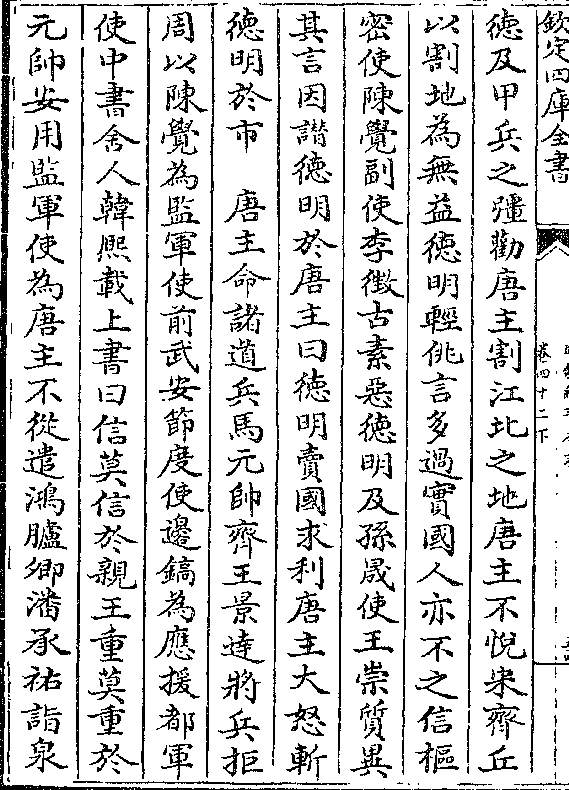 欽定四庫全書
卷四十二下
德及甲兵之彊勸唐主割江北之地唐主不悅宋齊丘
以割地為無益德明輕佻言多過實國人亦不之信樞
密使陳覺副使李徵古素惡德明及孫晟使王崇質異
其言因譖德明於唐主曰德明賣國求利唐主大怒斬
德明於市　唐主命諸道兵馬元帥齊王景達將兵拒
周以陳覺為監軍使前武安節度使邊鎬為應援都軍
使中書舍人韓熙載上書曰信莫信於親王重莫重於
元帥安用監軍使為唐主不從遣鴻臚卿潘承祐詣泉